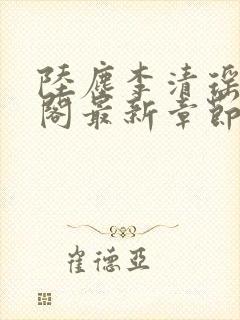 陸塵李清瑤
閣最新章節
崔德亞